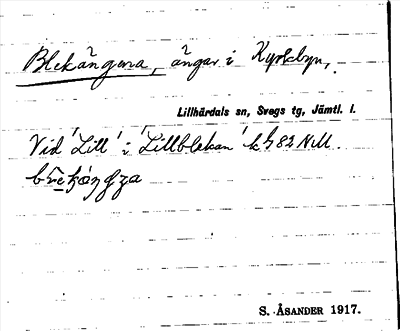 Blekängena, ängar i Kyrkbyn,
Lillhärdals sn, Svegs tg, Jämtl. l.
Vid 'Lill' i 'Lillblekan' k 782 NM.
S. ÅSANDER 1917.